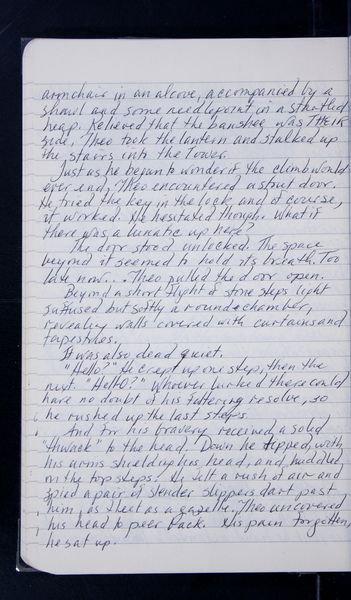 armchair in an alcove, accompanied by a
shawl and some needlepoint in a startled
heap. Relieved that the banshee was THEIR
side, Theo took the lantern and stalked up
the stairs into the tower.
Just as he began to wonder if the climb would
ever end, Theo encountered a stout door.
He tried the key in the lock, and of course,
it worked. He hesitated though. What if
there was a lunatic up here?
The door stood unlocked. The space
beyond it seemed to hold its breath. Too
late now... Theo pulled the door open.
Beyond a short flight of stone steps light
suffused but softly a round chamber,
revealing walls covered with curtains and
tapestries.
It was also dead quiet.
"Hello?" He crept up one step, then the
next. "Hello?" Whoever lurked there could
have no doubt of his faltering resolve, so
he rushed up the last steps.
And for his bravery received a solid
"thwack" to the head. Down he tipped, with
his arms shielding his head, and huddled
on the top steps. He felt a rush of air and
spied a pair of slender slippers dart past
him, as fleet as a gazelle. Theo uncovered
his head to peer back. His pain forgotten,
he sat up.